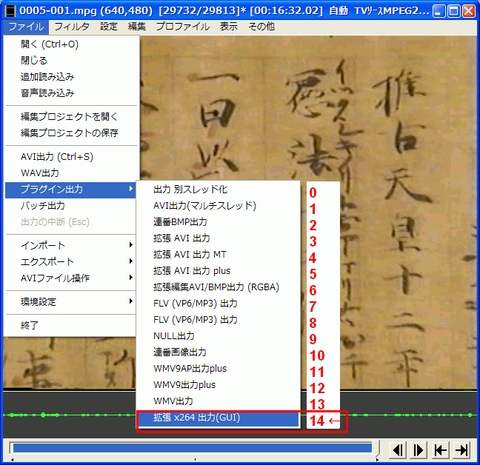 0005-001.mpg (640,480) [29732/29813]* [00:16:32.02] 自動 TVソースMPEG2...
ファイル フィルタ 設定 編集 プロファイル 表示 その他
開く (Ctrl+O)
閉じる
追加読み込み
音声読み込み
編集プロジェクトを開く
編集プロジェクトの保存
AVI出力 (Ctrl+S)
WAV出力
プラグイン出力
バッチ出力
出力の中断 (Esc)
インポート
エクスポート
AVIファイル操作
環境設定
終了
出力 別スレッド化 0
AVI出力(マルチスレッド) 1
連番BMP出力 2
拡張 AVI 出力 3
拡張 AVI 出力 MT 4
拡張 AVI 出力 plus 5
拡張編集AVI/BMP出力 (RGBA) 6
FLV (VP6/MP3) 出力 7
FLV (VP6/MP3) 出力 8
NULL出力 9
連番画像出力 10
WMV9AP出力plus 11
WMV9出力plus 12
WMV出力 13
拡張 x264 出力(GUI) 14 ←
推古天皇十二年
憲法
一曰以